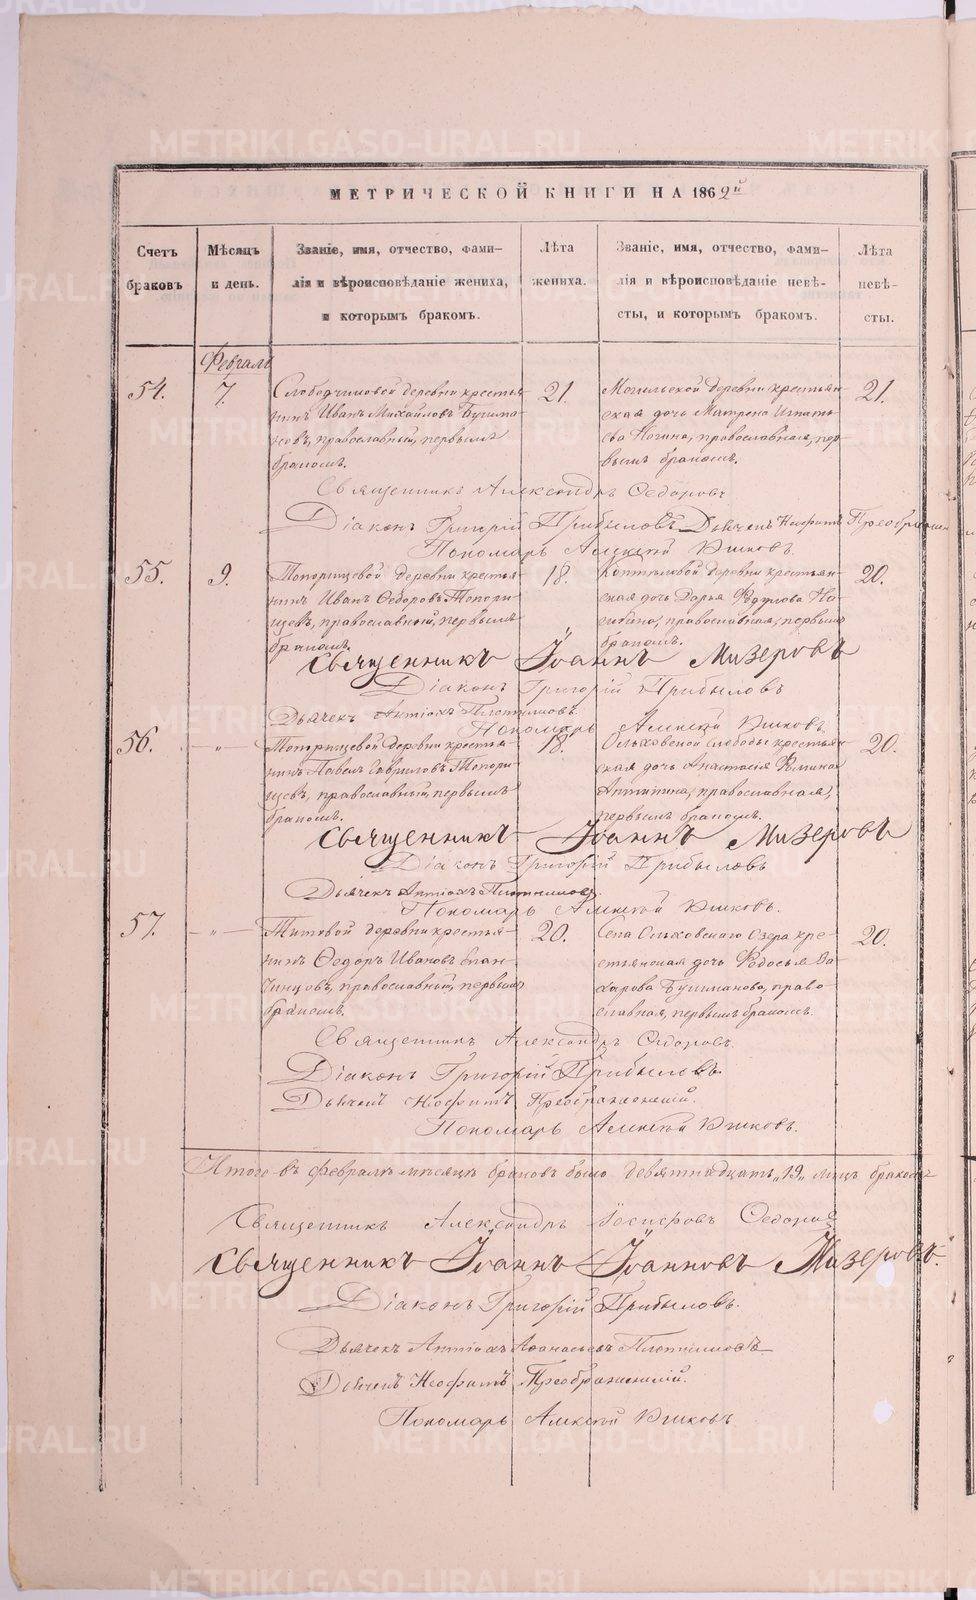 МЕТРИЧЕСКОЙ КНИГИ НА 1862й
Счетъ браковъ.
Мѣсяцъ и день.
Званіе, имя, отчество, фами-
лія и вѣроисповѣданіе жениха,
и которымъ бракомъ.
Лѣта жениха.
Званіе, имя, отчество, фами-
лія и вѣроисповѣданіе невѣ-
сты, и которымъ бракомъ.
Лѣта невѣ-
сты.
Февраль
54.
7.
Слободчиковой деревни крестья
нинъ Иванъ Михайловъ
православный, первымъ
бракомъ.
21.
Могильской деревни крестьян
ская дочь Матрена Игнать
ева православная, пер
вымъ бракомъ.
21.
Священникъ Александръ Ѳедоровъ
Діаконъ Григорій Прибыловъ Дьячекъ Неофитъ Преображен
Пономарь Алексѣй
55.
9.
Топорищевой деревни крестья
нинъ Иванъ Ѳедоровъ Топори-
щевъ, православный, первымъ
бракомъ.
18.
деревни крестьян-
ская дочь Дарья
православная, первымъ
бракомъ.
20.
Священникъ Іоаннъ Мизеровъ
Діаконъ Григорій Прибыловъ
Дьячекъ Антіохъ Плотниковъ.
Пономарь Алексѣй
56.
- " -
Топорищевой деревни крестья-
нинъ Павелъ Гавриловъ Топори-
щевъ, православный, первымъ
бракомъ.
18.
Ольховской слободы крестьян
ская дочь Анастасія
православная,
первымъ бракомъ.
20.
Священникъ Іоаннъ Мизеровъ
Діаконъ Григорій Прибыловъ
Дьячекъ Антіохъ Плотниковъ.
Пономарь Алексѣй
57.
- " -
Титовой деревни крестья-
нинъ Ѳедоръ Ивановъ Епан-
чинцовъ, православный, первымъ
бракомъ.
20.
Села Ольховскаго Озера кре-
стьянская дочь Ѳедосья За
харова Бушманова, право
славная, первымъ бракомъ.
20.
Священникъ Александръ Ѳедоровъ.
Діаконъ Григорій Прибыловъ.
Дьячекъ Неофитъ Преображенскій.
Пономарь Алексѣй
Итого въ февралѣ мѣсяцѣ браковъ было девятнадцать „19„
Священникъ Александръ Іосифовъ Ѳедоровъ
Священникъ Іоаннъ Іоанновъ Мизеровъ.
Діаконъ Григорій Прибыловъ.
Дьячекъ Антіохъ Аѳанасьевъ Плотниковъ
Дьячекъ Неофитъ Преображенскій.
Пономарь Алексѣй
METRIKI.GASO-URAL.RU